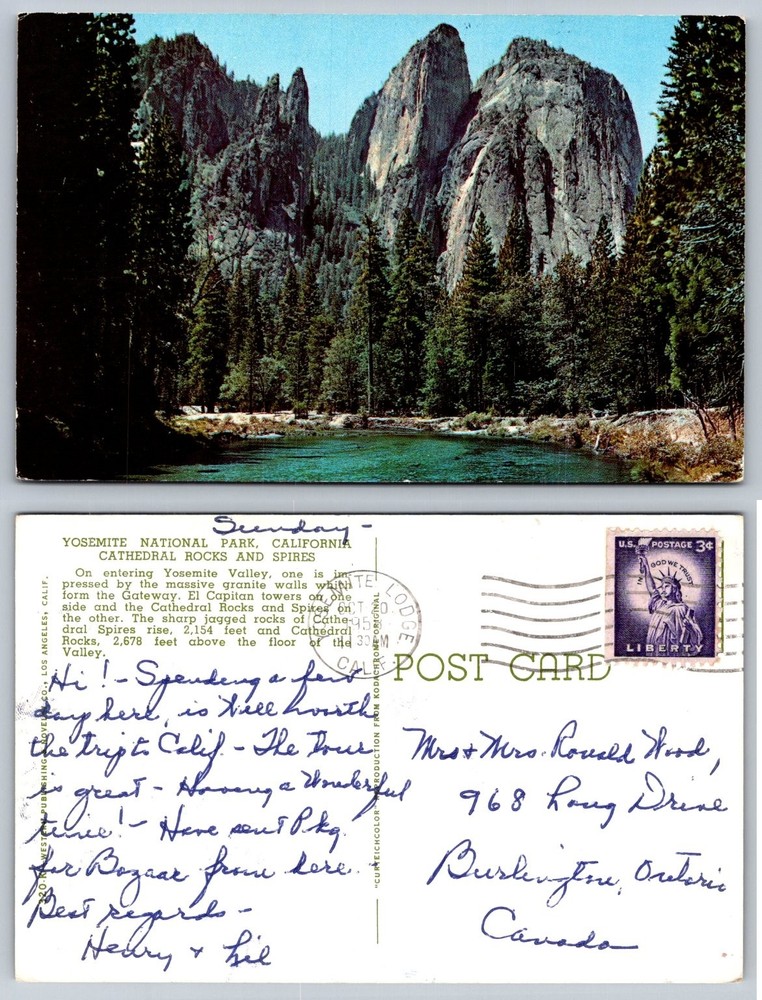 Sunday -
YOSEMITE NATIONAL PARK, CALIFORNIA
CATHEDRAL ROCKS AND SPIRES
On entering Yosemite Valley, one is im-
pressed by the massive granite walls which
form the Gateway. El Capitan towers on one
side and the Cathedral Rocks and Spires on
the other. The sharp jagged rocks of Cathe-
dral Spires rise, 2,154 feet and Cathedral
Rocks, 2,678 feet above the floor of the
Valley.
Hi! - Spending a few
days here, is well worth
the trip to Calif. - The Tour
is great - Having a Wonderful
time! - Have sent Pkg.
for Bazaar from here.
Best regards -
Henry & Lil
WESTERN PUBLISHING & NOVELTY CO., LOS ANGELES, CALIF.
"CURTEICHCOLOR" REPRODUCTION FROM KODACHROME ORIGINAL
YOSEMITE LODGE
OCT 20
AM
CALIF.
U.S. POSTAGE 3¢
IN GOD WE TRUST
LIBERTY
POST CARD
Mr & Mrs. Ronald Wood,
968 Long Drive
Burlington, Ontario
Canada